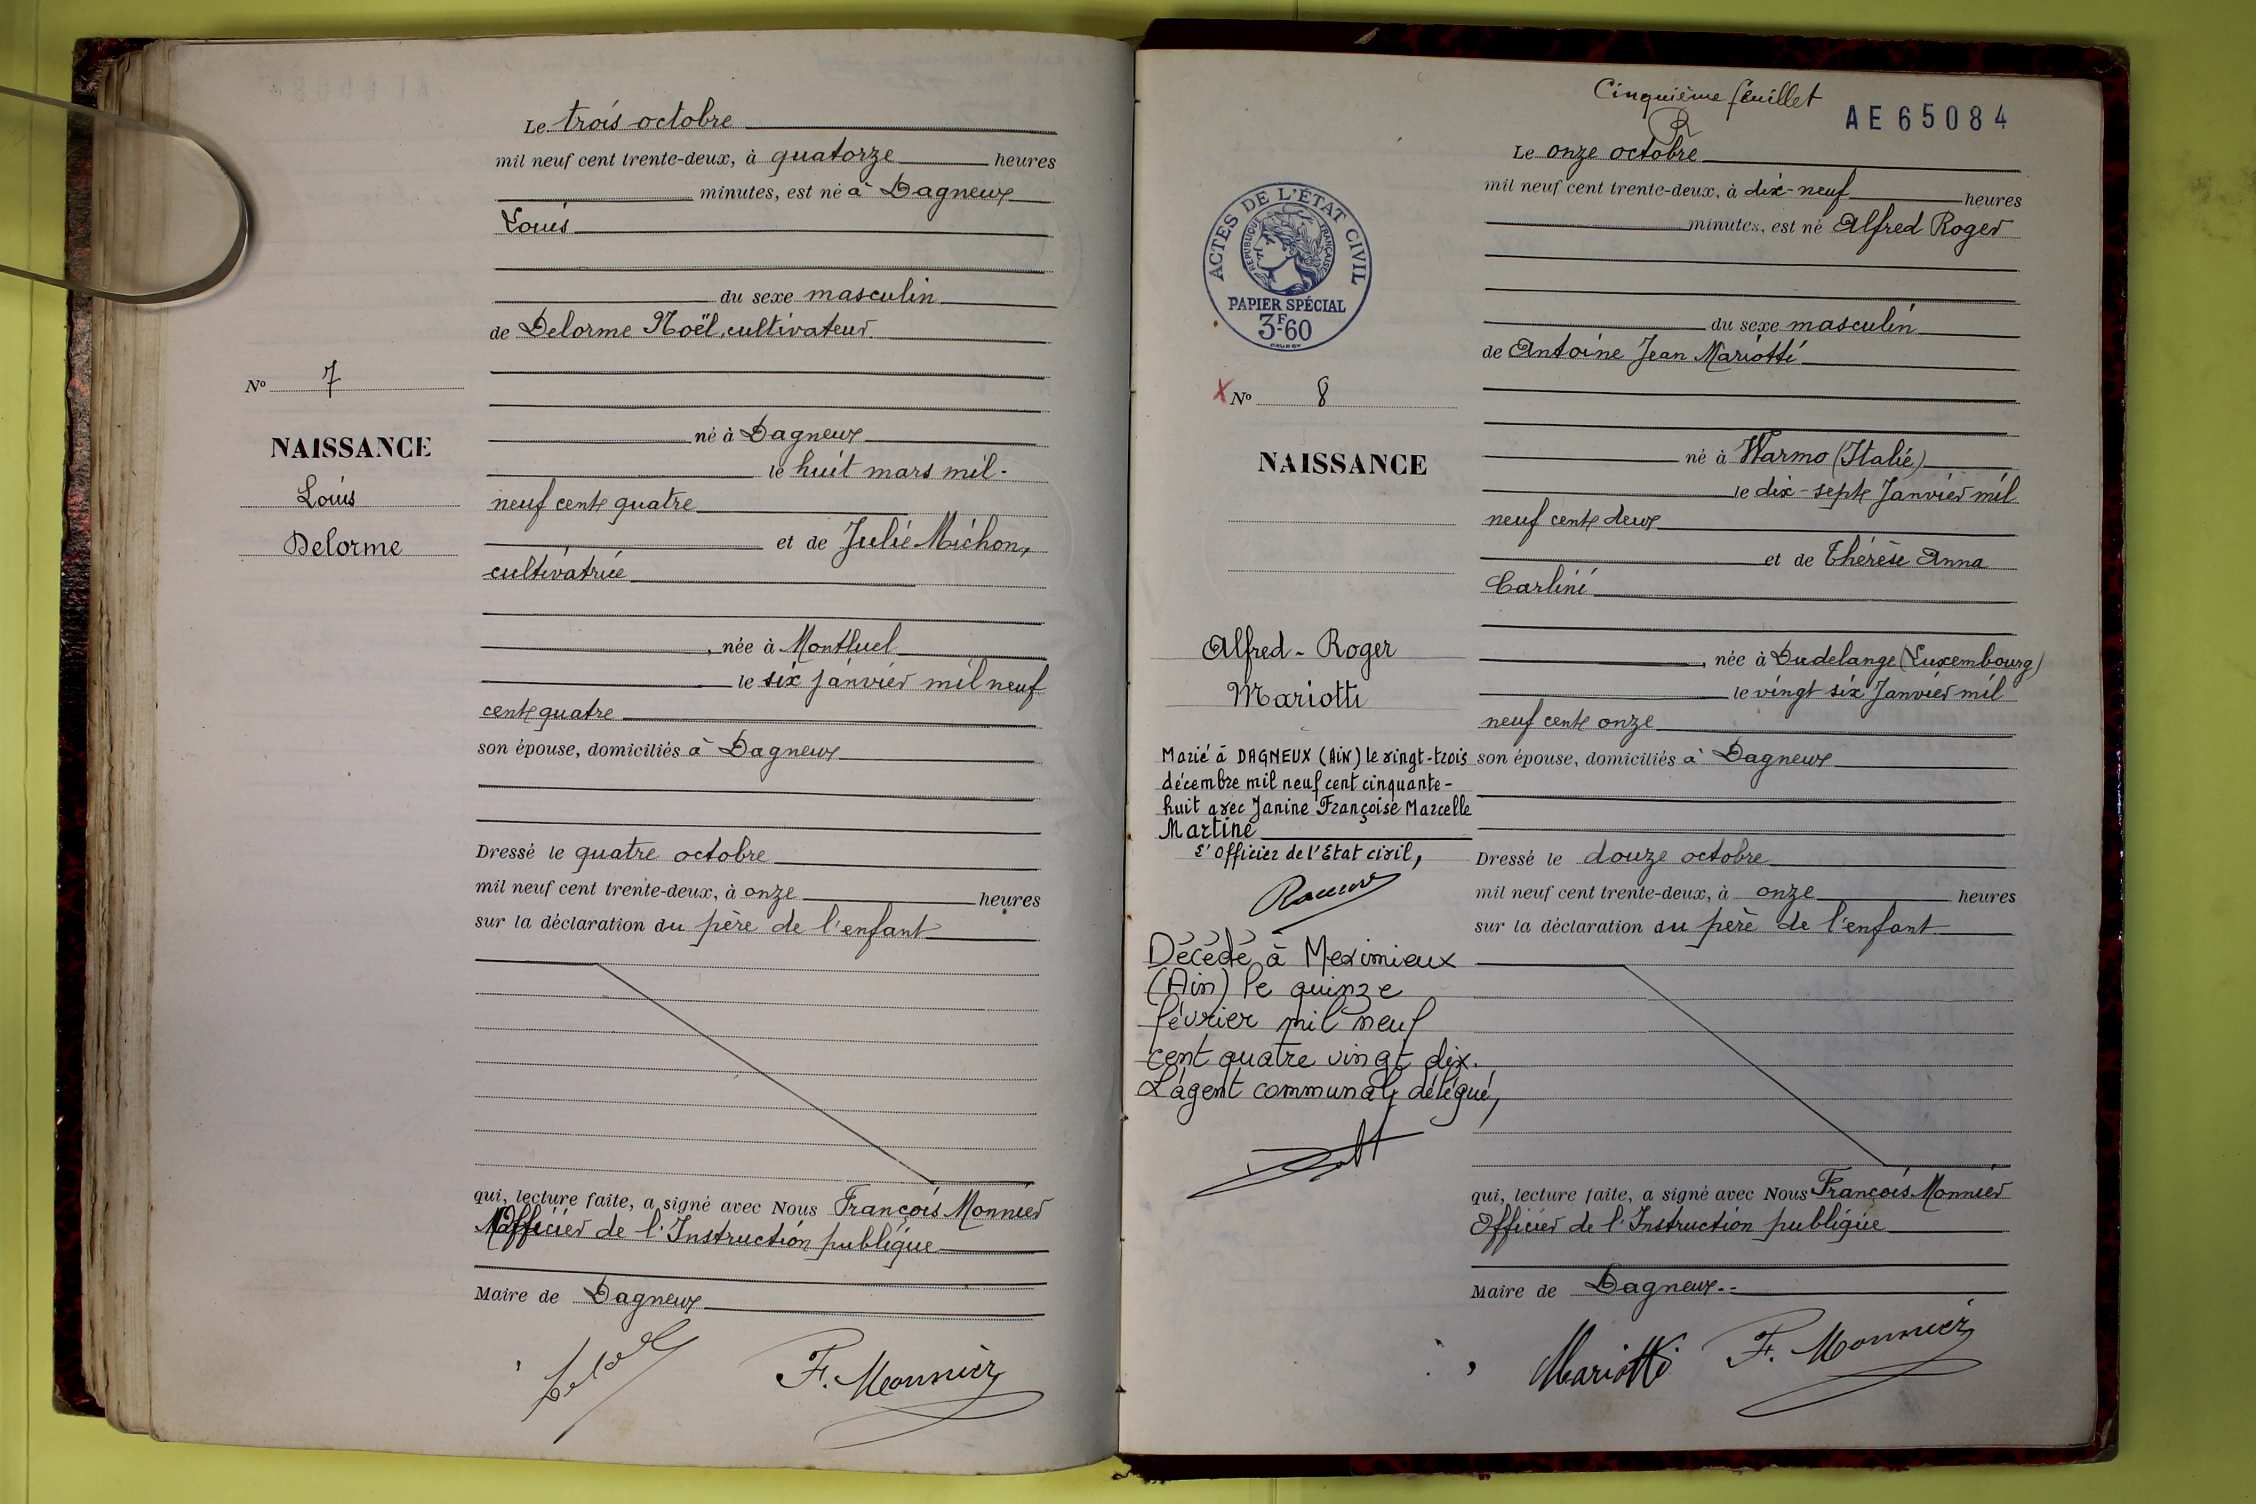 Le trois octobre
mil neuf cent trente-deux, à quatorze heures
minutes, est né à Dagneux
Louis
du sexe masculin
de Delorme Noël, cultivateur
Nº 7
NAISSANCE
Louis
Delorme
né à Dagneux
le huit mars mil-
neuf cent quatre
et de Julie Michon,
cultivatrice
, née à Montluel
le six janvier mil neuf
cent quatre
son épouse, domiciliés à Dagneux
Dressé le quatre octobre
mil neuf cent trente-deux, à onze heures
sur la déclaration du père de l'enfant
qui, lecture faite, a signé avec Nous François Monnier
Officier de l'Instruction publique
Maire de Dagneux
F. Monnier
Cinquième feuillet
AE 65084
Le onze octobre
mil neuf cent trente-deux, à dix-neuf heures
minutes, est né Alfred Roger
ACTES DE L'ÉTAT CIVIL
RÉPUBLIQUE FRANÇAISE
PAPIER SPÉCIAL
3F60
du sexe masculin
de Antoine Jean Mariotti
X Nº 8
NAISSANCE
né à Warmo (Italie)
le dix-sept Janvier mil
neuf cent deux
et de Thérèse Anna
Carlini
Alfred-Roger
Mariotti
, née à Dudelange (Luxembourg)
le vingt six Janvier mil
neuf cent onze
son épouse, domiciliés à Dagneux
Marié à DAGNEUX (Ain) le vingt-trois
décembre mil neuf cent cinquante-
huit avec Janine Françoise Marcelle
Martine
L'Officier de l'Etat civil,
Dressé le douze octobre
mil neuf cent trente-deux, à onze heures
sur la déclaration du père de l'enfant
Décédé à Meximieux
(Ain) le quinze
février mil neuf
cent quatre vingt dix.
L'agent communal délégué,
qui, lecture faite, a signé avec Nous François Monnier
Officier de l'Instruction publique
Maire de Dagneux.-
Mariotti F. Monnier